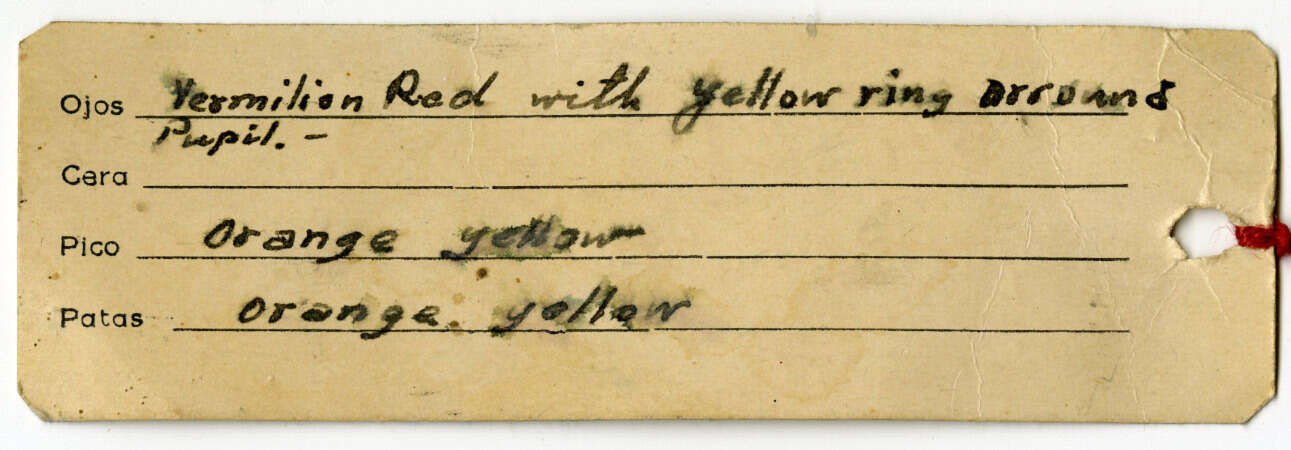 Ojos Vermilion Red with yellow ring arround
Pupil. –
Cera
Pico Orange yellow
Patas Orange yellow